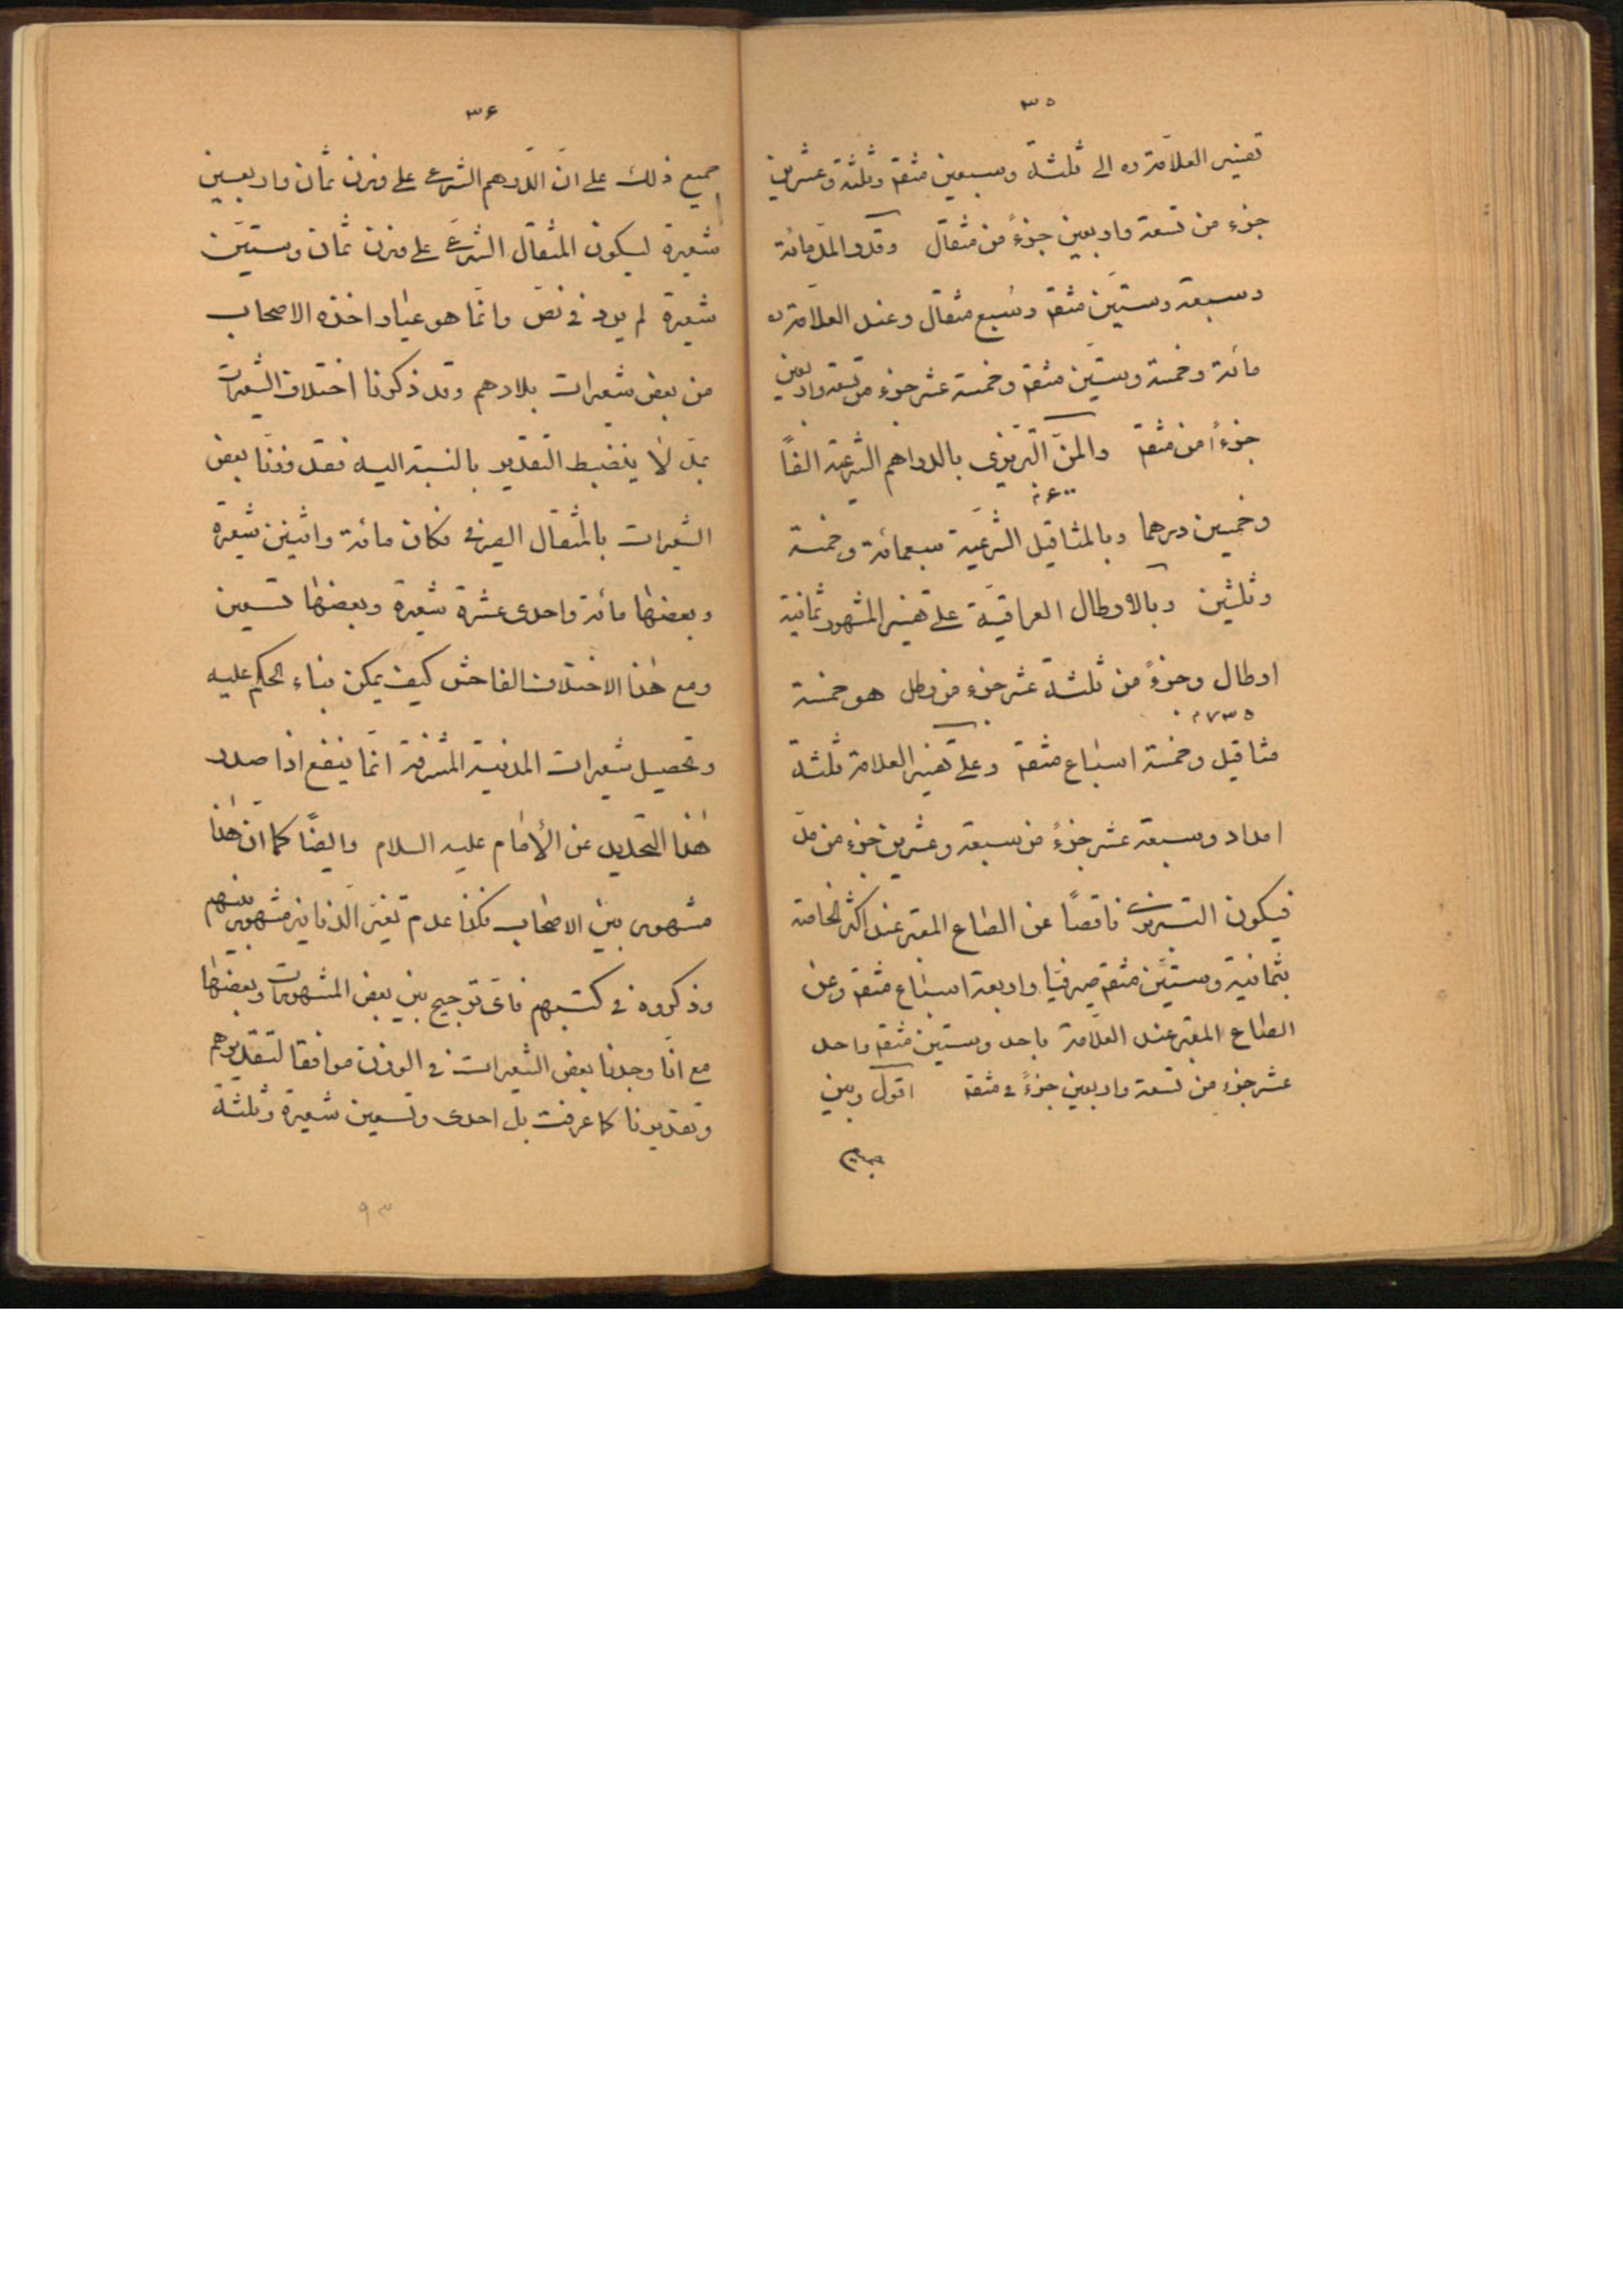 ٣٥
تفسير العلامة ره الى ثلثة وسبعين مثقم وثلثة وعشرين
جزء من تسعة واربعين جزءً من مثقال وقدر المدّ مائة
وسبعة وستّين مثقم وسُبع مثقال وعند العلّامة ره
مائة وخمسة وستّين مثقم وخمسة عشر جزء من تسعة واربعين
جزءًا من مثقم والمنّ التبريزى بالدراهم الشرعية الفًا
٠٦٠٠
وخمسين درهما وبالمثاقيل الشرعيّة سبعمائة وخمسة
وثلثين وبالارطال العراقيّة على تفسير المشهور ثمانية
ارطال وجزءً من ثلثة عشر جزء من رطل هو خمسة
٠٧٣٥
مثاقيل وخمسة اسباع مثقم وعلى تفسير العلامة ثلثة
امداد وسبعة عشر جزءً من سبعة وعشرين جزء من مدّ
فيكون التبريزى ناقصًا عن الصاع المعتبر عند اكثر الخاصة
بثمانية وستّين مثقم صيرفيّا واربعة اسباع مثقم وعن
الصاع المعتبر عند العلّامة باحد وستين مثقم واحد
عشر جزء من تسعة واربعين جزءً مثقم اقول وبين
٣٦
جميع ذلك على انّ الدّرهم الشرعى على وزن ثمان واربعين
شعيرة ليكون المثقال الشرعىّ على وزن ثمان وستّين
شعيرة لم يرد فى نصّ وانّما هو عيار اخذه الاصحاب
من بعض شعيرات بلادهم وقد ذكرنا اختلاف الشعيرات
لا ينضبط التقدير بالنسبة اليه فقد وزنّا بعض
الشعيرات بالمثقال الصيرفى فكان مائة واثنين شعيرة
وبعضها مائة واحدى عشرة شعيرة وبعضها تسعين
ومع هٰذا الاختلاف الفاحش كيف يمكن بناء الحكم عليه
وتحصيل شعيرات المدينة المشرفة انّما ينفع اذا صدر
هٰذا التحديد عن الأمام عليه السلام وايضًا كما انّ هٰذا
مشهور بين الاصحاب فكذا عدم تغيّر الدّنانير مشهور بينهم
وذكروه فى كتبهم فاىّ ترجيح بين بعض المشهورات وبعضها
مع انّا وجدنا بعض الشعيرات فى الوزن موافقا لتقديرهم
وتقديرنا كما عرفت بل احدى وتسعين شعيرة وثلثة
٩٣